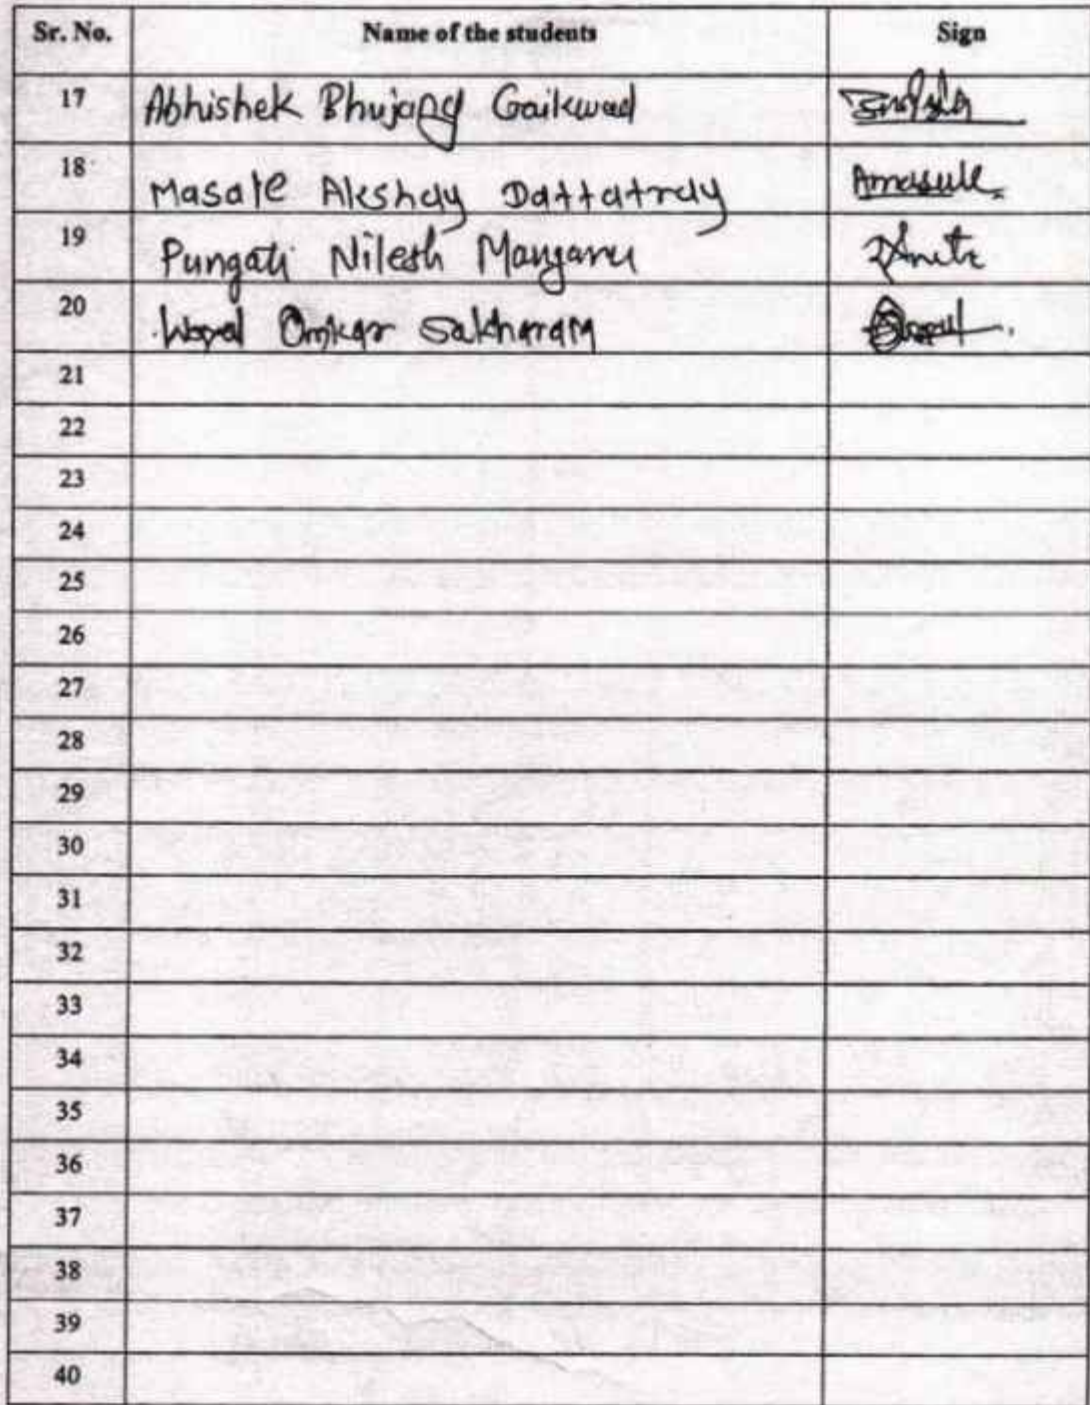 Sr. No. Name of the students Sign
17 Abhishek Bhujang Gaikwad
18 Masale Akshay Dattatray Amasule
19 Pungati Nilesh
20 Omkar Sakharam
21
22
23
24
25
26
27
28
29
30
31
32
33
34
35
36
37
38
39
40